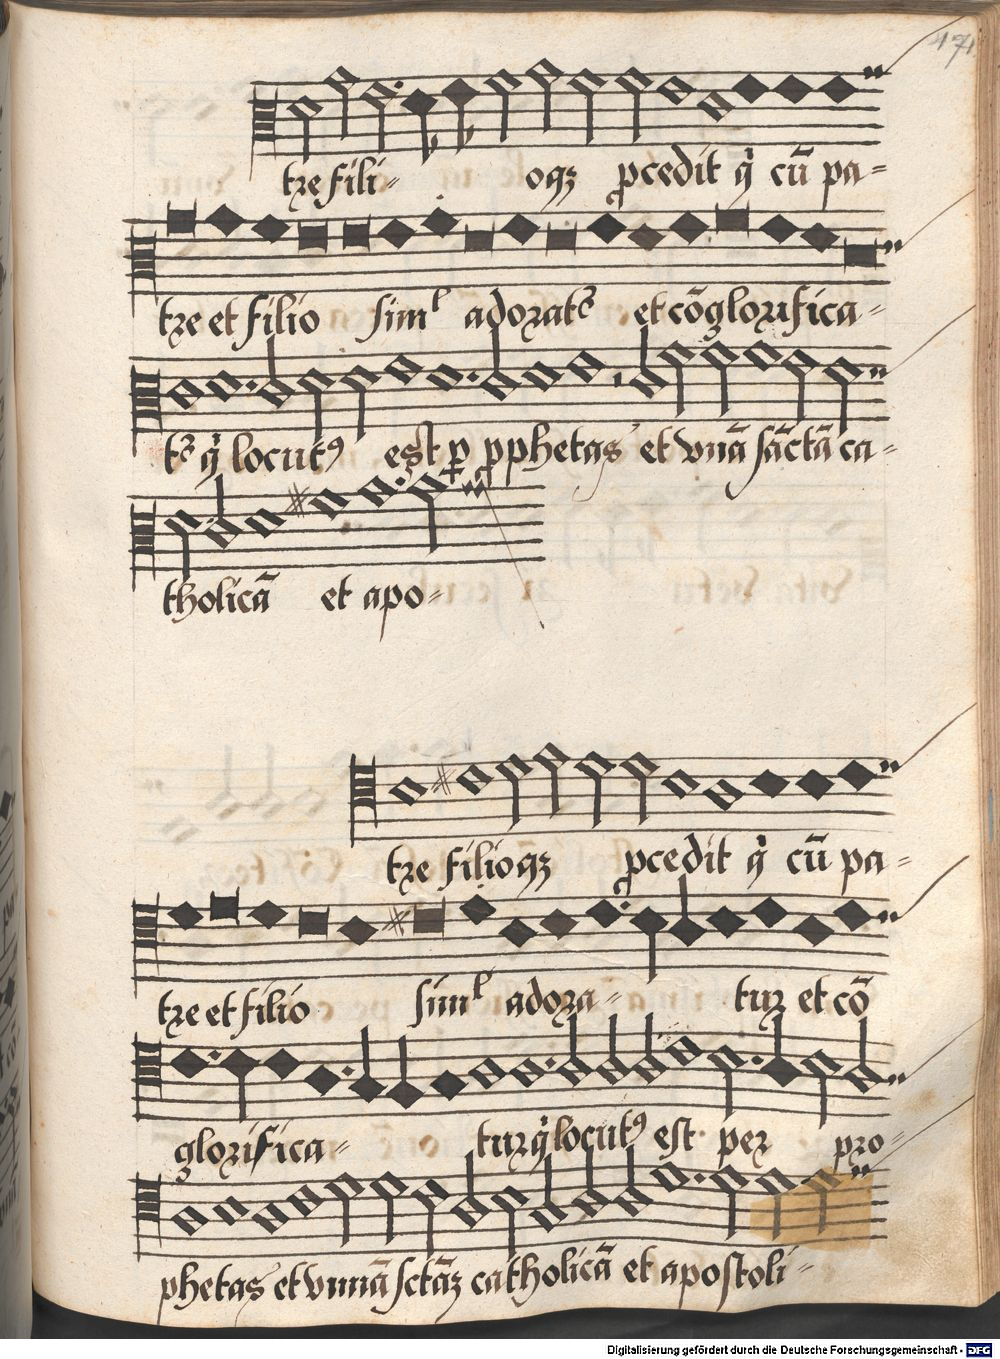 471
tre fili- oqz pcedit q cū pa-
tre et filio siml adorat et cōglorifica-
t q locut9 est p pphetas et vnā sāctā ca-
tholicā et apo-
tre filioqz pcedit q cū pa-
tre et filio siml adora- tur et cō
glorifica- tur q locut9 est per pro-
phetas et vnnā sctāz catholicā et apostoli-
Digitalisierung gefördert durch die Deutsche Forschungsgemeinschaft - DFG